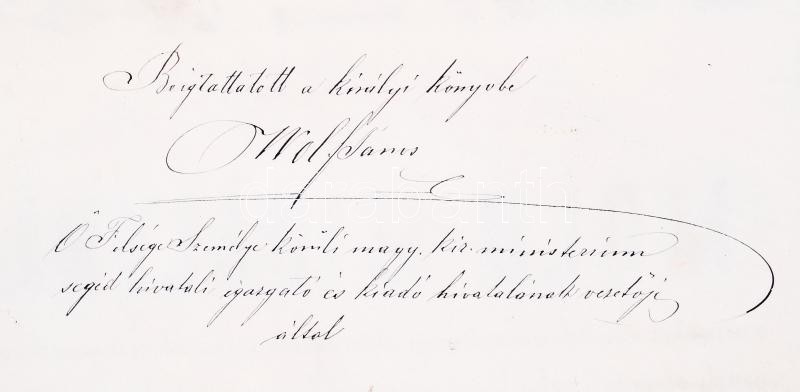 Beigtattatott a királyi könyvbe
Wolf János
darabanth
Ő Felsége Személye körüli magy. kir. ministerium
segéd hivatali igazgató és kiadó hivatalának vezetője
által